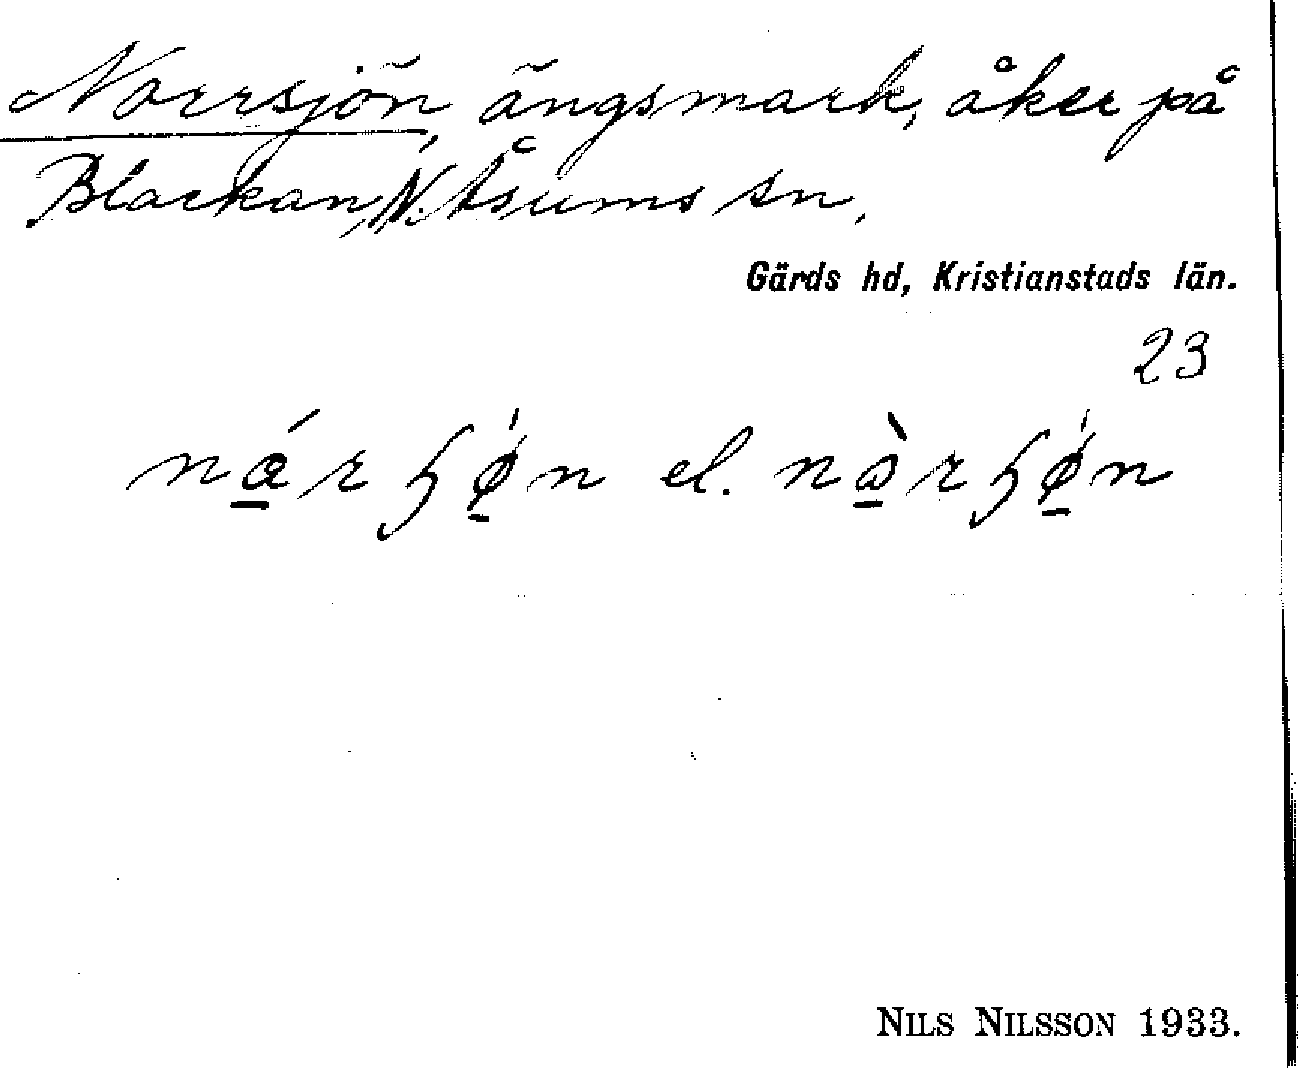 Norrsjön, ängsmark, åker på
Blackan, N. Åsums sn.
Gärds hd, Kristianstads län.
23
el.
NILS NILSSON 1933.